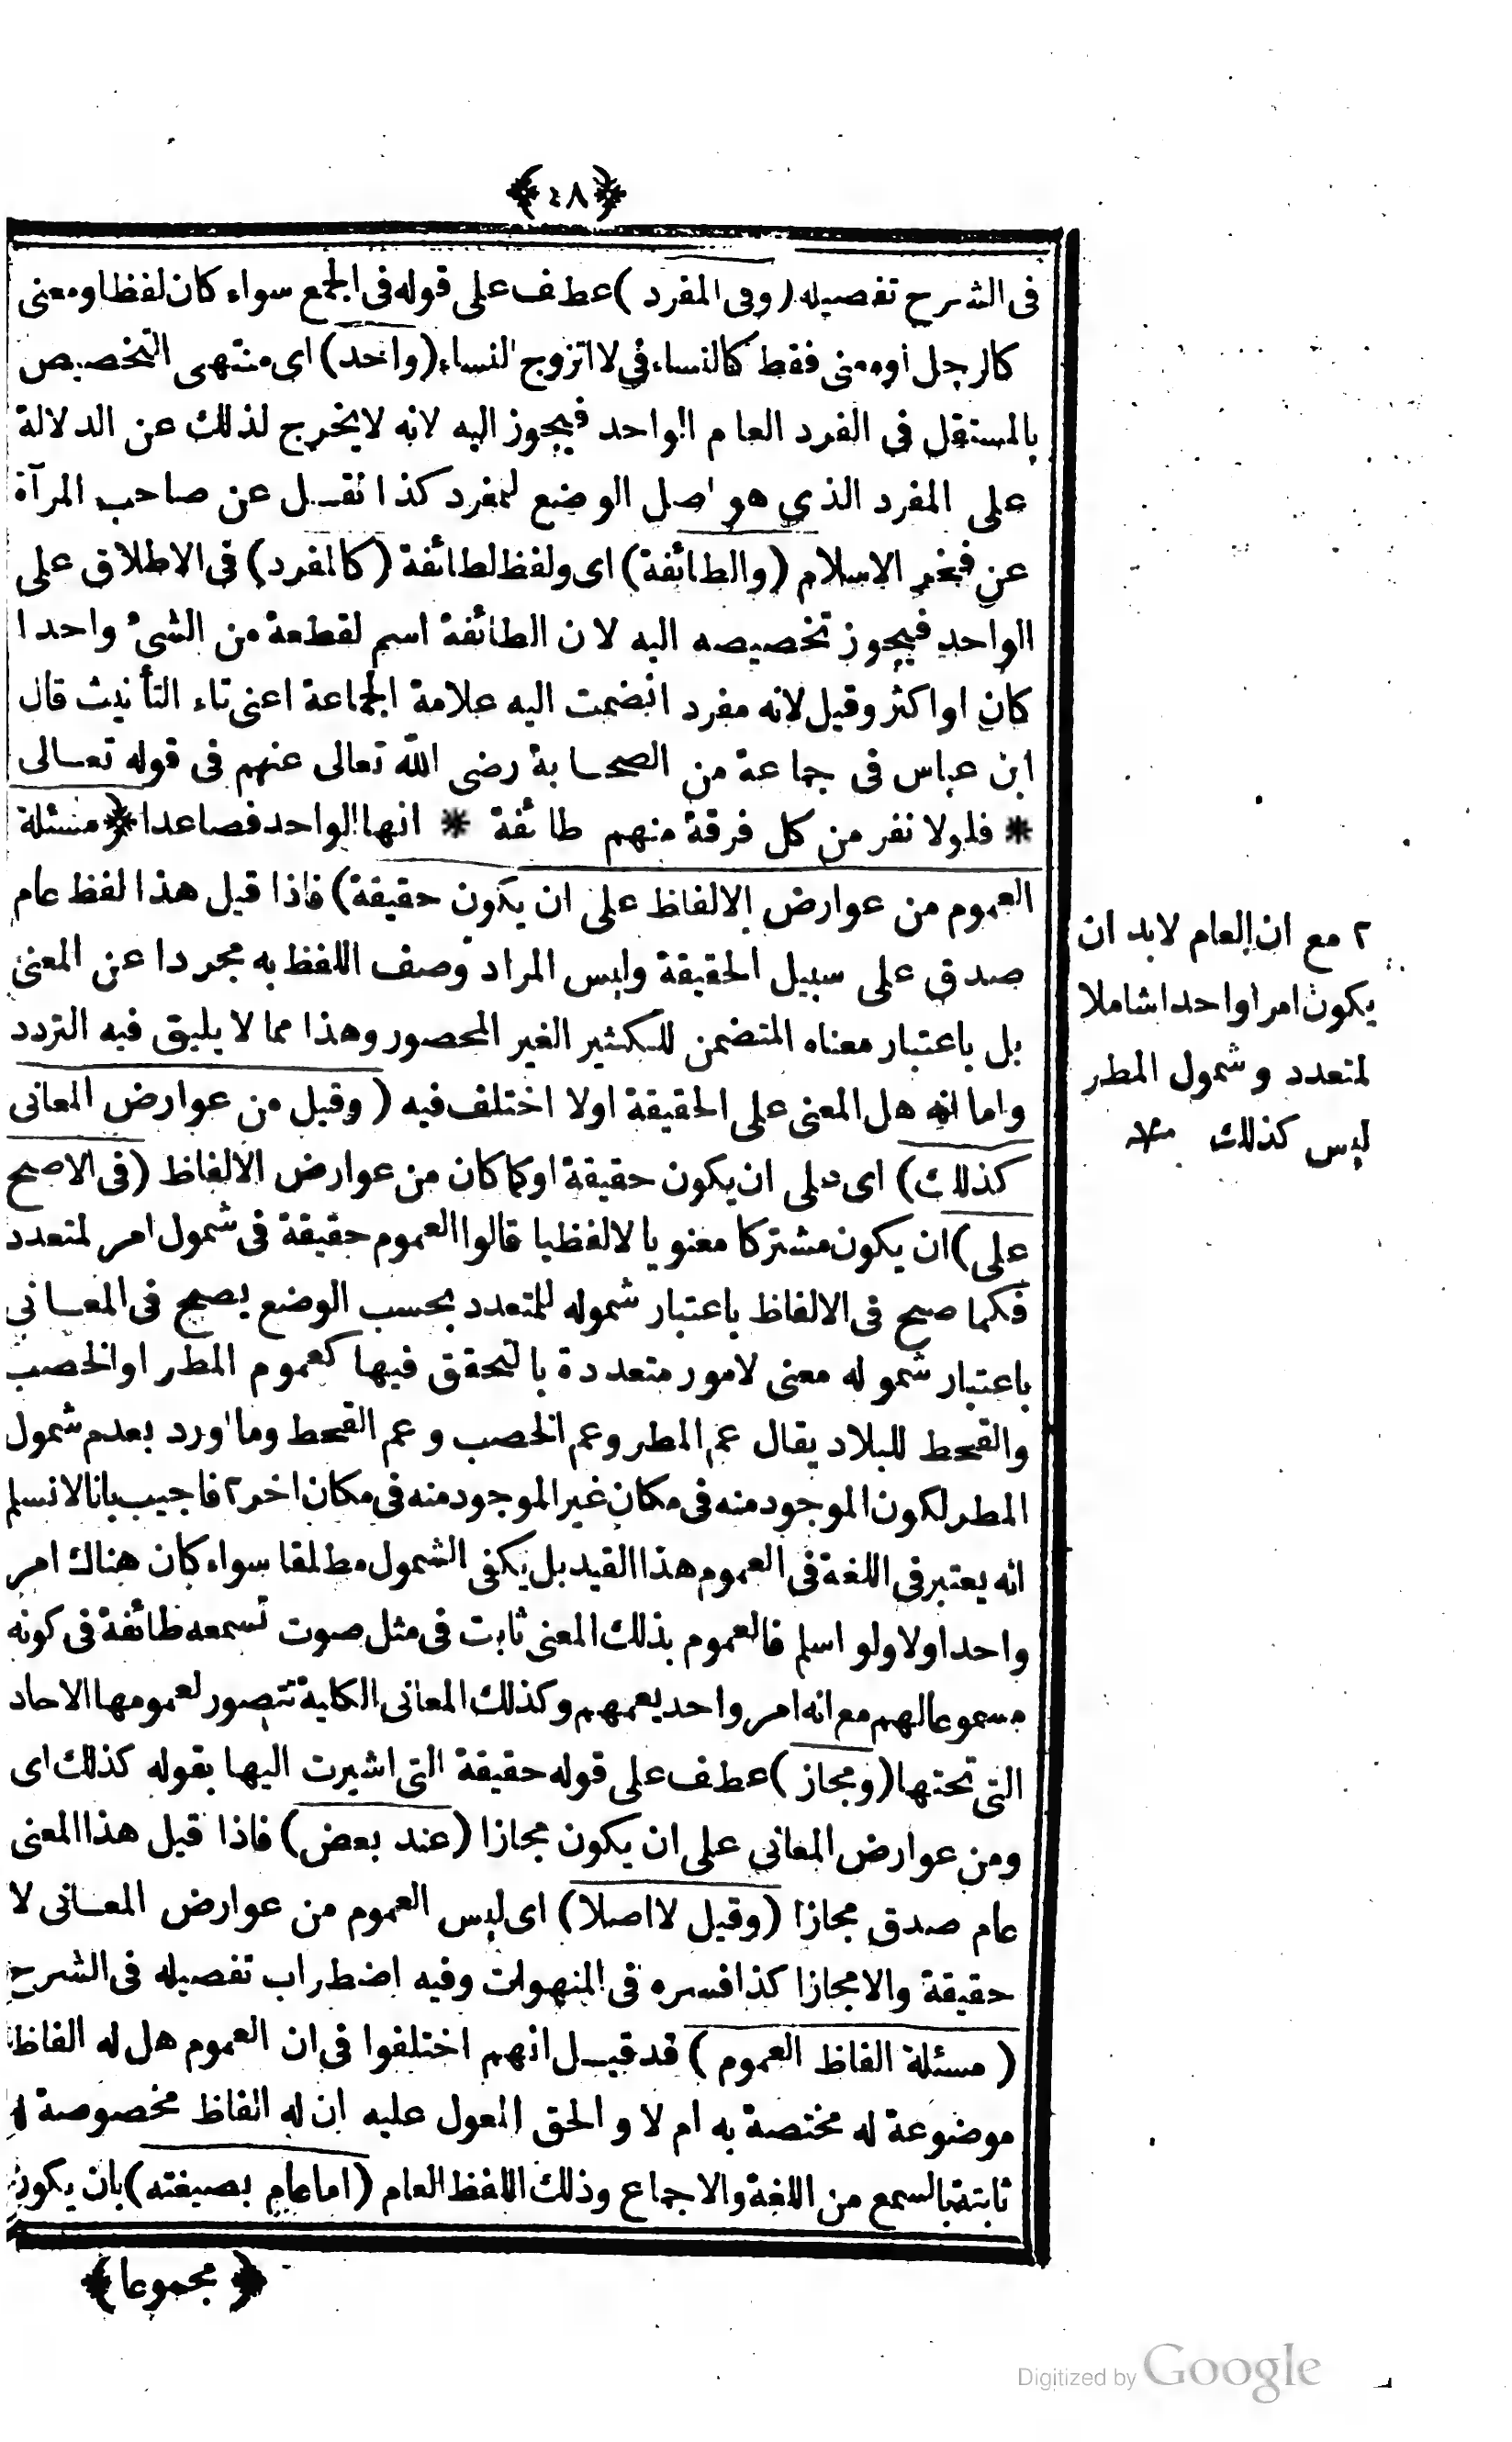 ﴿٤٨﴾
فى الشرح تفصيله (وفى المفرد) عطف على قوله فى الجمع سواء كان لفظا ومعنى
كالرجل او معنى فقط كالنساء فى لا اتزوج النساء (واحد) اى منتهى التخصيص
بالمستقل فى الفرد العام الواحد فيجوز اليه لانه لا يخرج لذلك عن الدلالة
على المفرد الذى هو اصل الوضع لمفرد كذا نقل عن صاحب المرآة
عن فخر الاسلام (والطائفة) اى ولفظ لطائفة (كالمفرد) فى الاطلاق على
الواحد فيجوز تخصيصه اليه لان الطائفة اسم لقطعة من الشئ واحدا
كان او اكثر وقيل لانه مفرد انضمت اليه علامة الجماعة اعنى تاء التأنيث قال
ابن عباس فى جماعة من الصحابة رضى الله تعالى عنهم فى قوله تعالى
* فلولا نفر من كل فرقة منهم طائفة * انها الواحد فصاعدا ﴿مسئلة
العموم من عوارض الالفاظ على ان يكون حقيقة) فاذا قيل هذا لفظ عام
صدق على سبيل الحقيقة وليس المراد وصف اللفظ به مجردا عن المعنى
بل باعتبار معناه المتضمن للكثير الغير المحصور وهذا مما لا يليق فيه التردد
واما انه هل المعنى على الحقيقة اولا اختلف فيه (وقيل من عوارض المعانى
كذلك) اى على ان يكون حقيقة او كما كان من عوارض الالفاظ (فى الاصح
على) ان يكون مشتركا معنويا لالفظيا قالوا العموم حقيقة فى شمول امر لمتعدد
فكما صح فى الالفاظ باعتبار شموله للمتعدد بحسب الوضع يصح فى المعانى
باعتبار شموله معنى لامور متعددة بالتحقق فيها كعموم المطر او الخصب
والقحط للبلاد يقال عم المطر وعم الخصب وعم القحط وما اورد بعدم شمول
المطر لكون الموجود منه فى مكان غير الموجود منه فى مكان اخر ٢ فاجيب بانا لا نسلم
انه يعتبر فى اللغة فى العموم هذا القيد بل يكفى الشمول مطلقا سواء كان هناك امر
واحد اولا ولو اسلم فالعموم بذلك المعنى ثابت فى مثل صوت تسمعه طائفة فى كونه
مسموعا لهم مع انه امر واحد يعمهم وكذلك المعانى الكلية تتصور لعمومها الاحاد
التى تحتها (ومجاز) عطف على قوله حقيقة التى اشيرت اليها بقوله كذلك اى
ومن عوارض المعانى على ان يكون مجازا (عند بعض) فاذا قيل هذا المعنى
عام صدق مجازا (وقيل لا اصلا) اى ليس العموم من عوارض المعانى لا
حقيقة والا مجازا كذا فسره فى المنهوات وفيه اضطراب تفصيله فى الشرح
(مسئلة الفاظ العموم) قد قيل انهم اختلفوا فى ان العموم هل له الفاظ
موضوعة له مختصة به ام لا والحق المعول عليه ان له الفاظ مخصوصة له
ثابتة بالسمع من اللغة والاجماع وذلك اللفظ العام (اما عام بصيغته) بان يكون
﴿مجموعا﴾
٢ مع ان العام لابد ان
يكون امرا واحدا شاملا
لمتعدد وشمول المطر
ليس كذلك منه
Digitized by Google